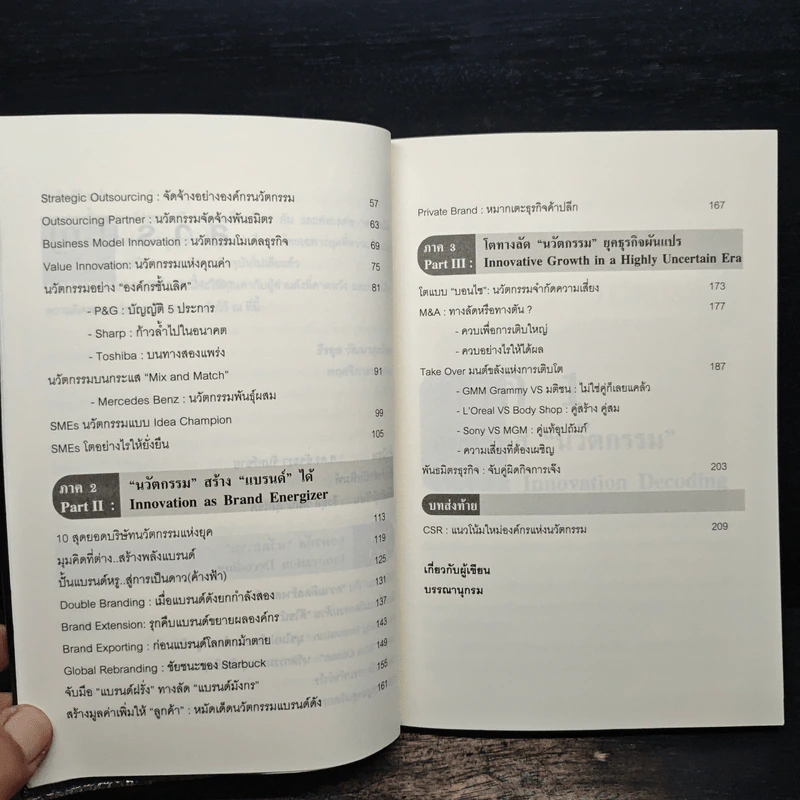 Strategic Outsourcing : จัดจ้างอย่างองค์กรนวัตกรรม 57
Outsourcing Partner : นวัตกรรมจัดจ้างพันธมิตร 63
Business Model Innovation : นวัตกรรมโมเดลธุรกิจ 69
Value Innovation: นวัตกรรมแห่งคุณค่า 75
นวัตกรรมอย่าง "องค์กรชั้นเลิศ" 81
- P&G : บัญญัติ 5 ประการ
- Sharp : ก้าวล้ำไปในอนาคต
- Toshiba : บนทางสองแพร่ง
นวัตกรรมบนกระแส "Mix and Match" 91
- Mercedes Benz : นวัตกรรมพันธุ์ผสม
SMEs นวัตกรรมแบบ Idea Champion 99
SMEs โตอย่างไรให้ยั่งยืน 105
ภาค 2 "นวัตกรรม" สร้าง "แบรนด์" ได้
Part II : Innovation as Brand Energizer
10 สุดยอดบริษัทนวัตกรรมแห่งยุค 113
มุมคิดที่ต่าง..สร้างพลังแบรนด์ 119
ปั้นแบรนด์หรู..สู่การเป็นดาว(ค้างฟ้า) 125
Double Branding : เมื่อแบรนด์ดังยกกำลังสอง 131
Brand Extension: รุกคืบแบรนด์ขยายผลองค์กร 137
Brand Exporting : ก่อนแบรนด์โลกตกม้าตาย 143
Global Rebranding : ชัยชนะของ Starbuck 149
จับมือ "แบรนด์ฝรั่ง" ทางลัด "แบรนด์มังกร" 155
สร้างมูลค่าเพิ่มให้ "ลูกค้า" : หมัดเด็ดนวัตกรรมแบรนด์ดัง 161
Private Brand : หมากเตะธุรกิจค้าปลีก 167
ภาค 3 โตทางลัด "นวัตกรรม" ยุคธุรกิจผันแปร
Part III : Innovative Growth in a Highly Uncertain Era
โตแบบ "บอนไซ": นวัตกรรมจำกัดความเสี่ยง 173
M&A : ทางลัดหรือทางตัน ? 177
- ควบเพื่อการเติบใหญ่
- ควบอย่างไรให้ได้ผล
Take Over มนต์ขลังแห่งการเติบโต 187
- GMM Grammy VS มติชน : ไม่ใช่คู่ก็เลยแคล้ว
- L'Oreal VS Body Shop : คู่สร้าง คู่สม
- Sony VS MGM : คู่แท้อุปถัมภ์
- ความเสี่ยงที่ต้องเผชิญ
พันธมิตรธุรกิจ : จับคู่ผิดกิจการเจ๊ง 203
บทส่งท้าย
CSR : แนวโน้มใหม่องค์กรแห่งนวัตกรรม 209
เกี่ยวกับผู้เขียน
บรรณานุกรม